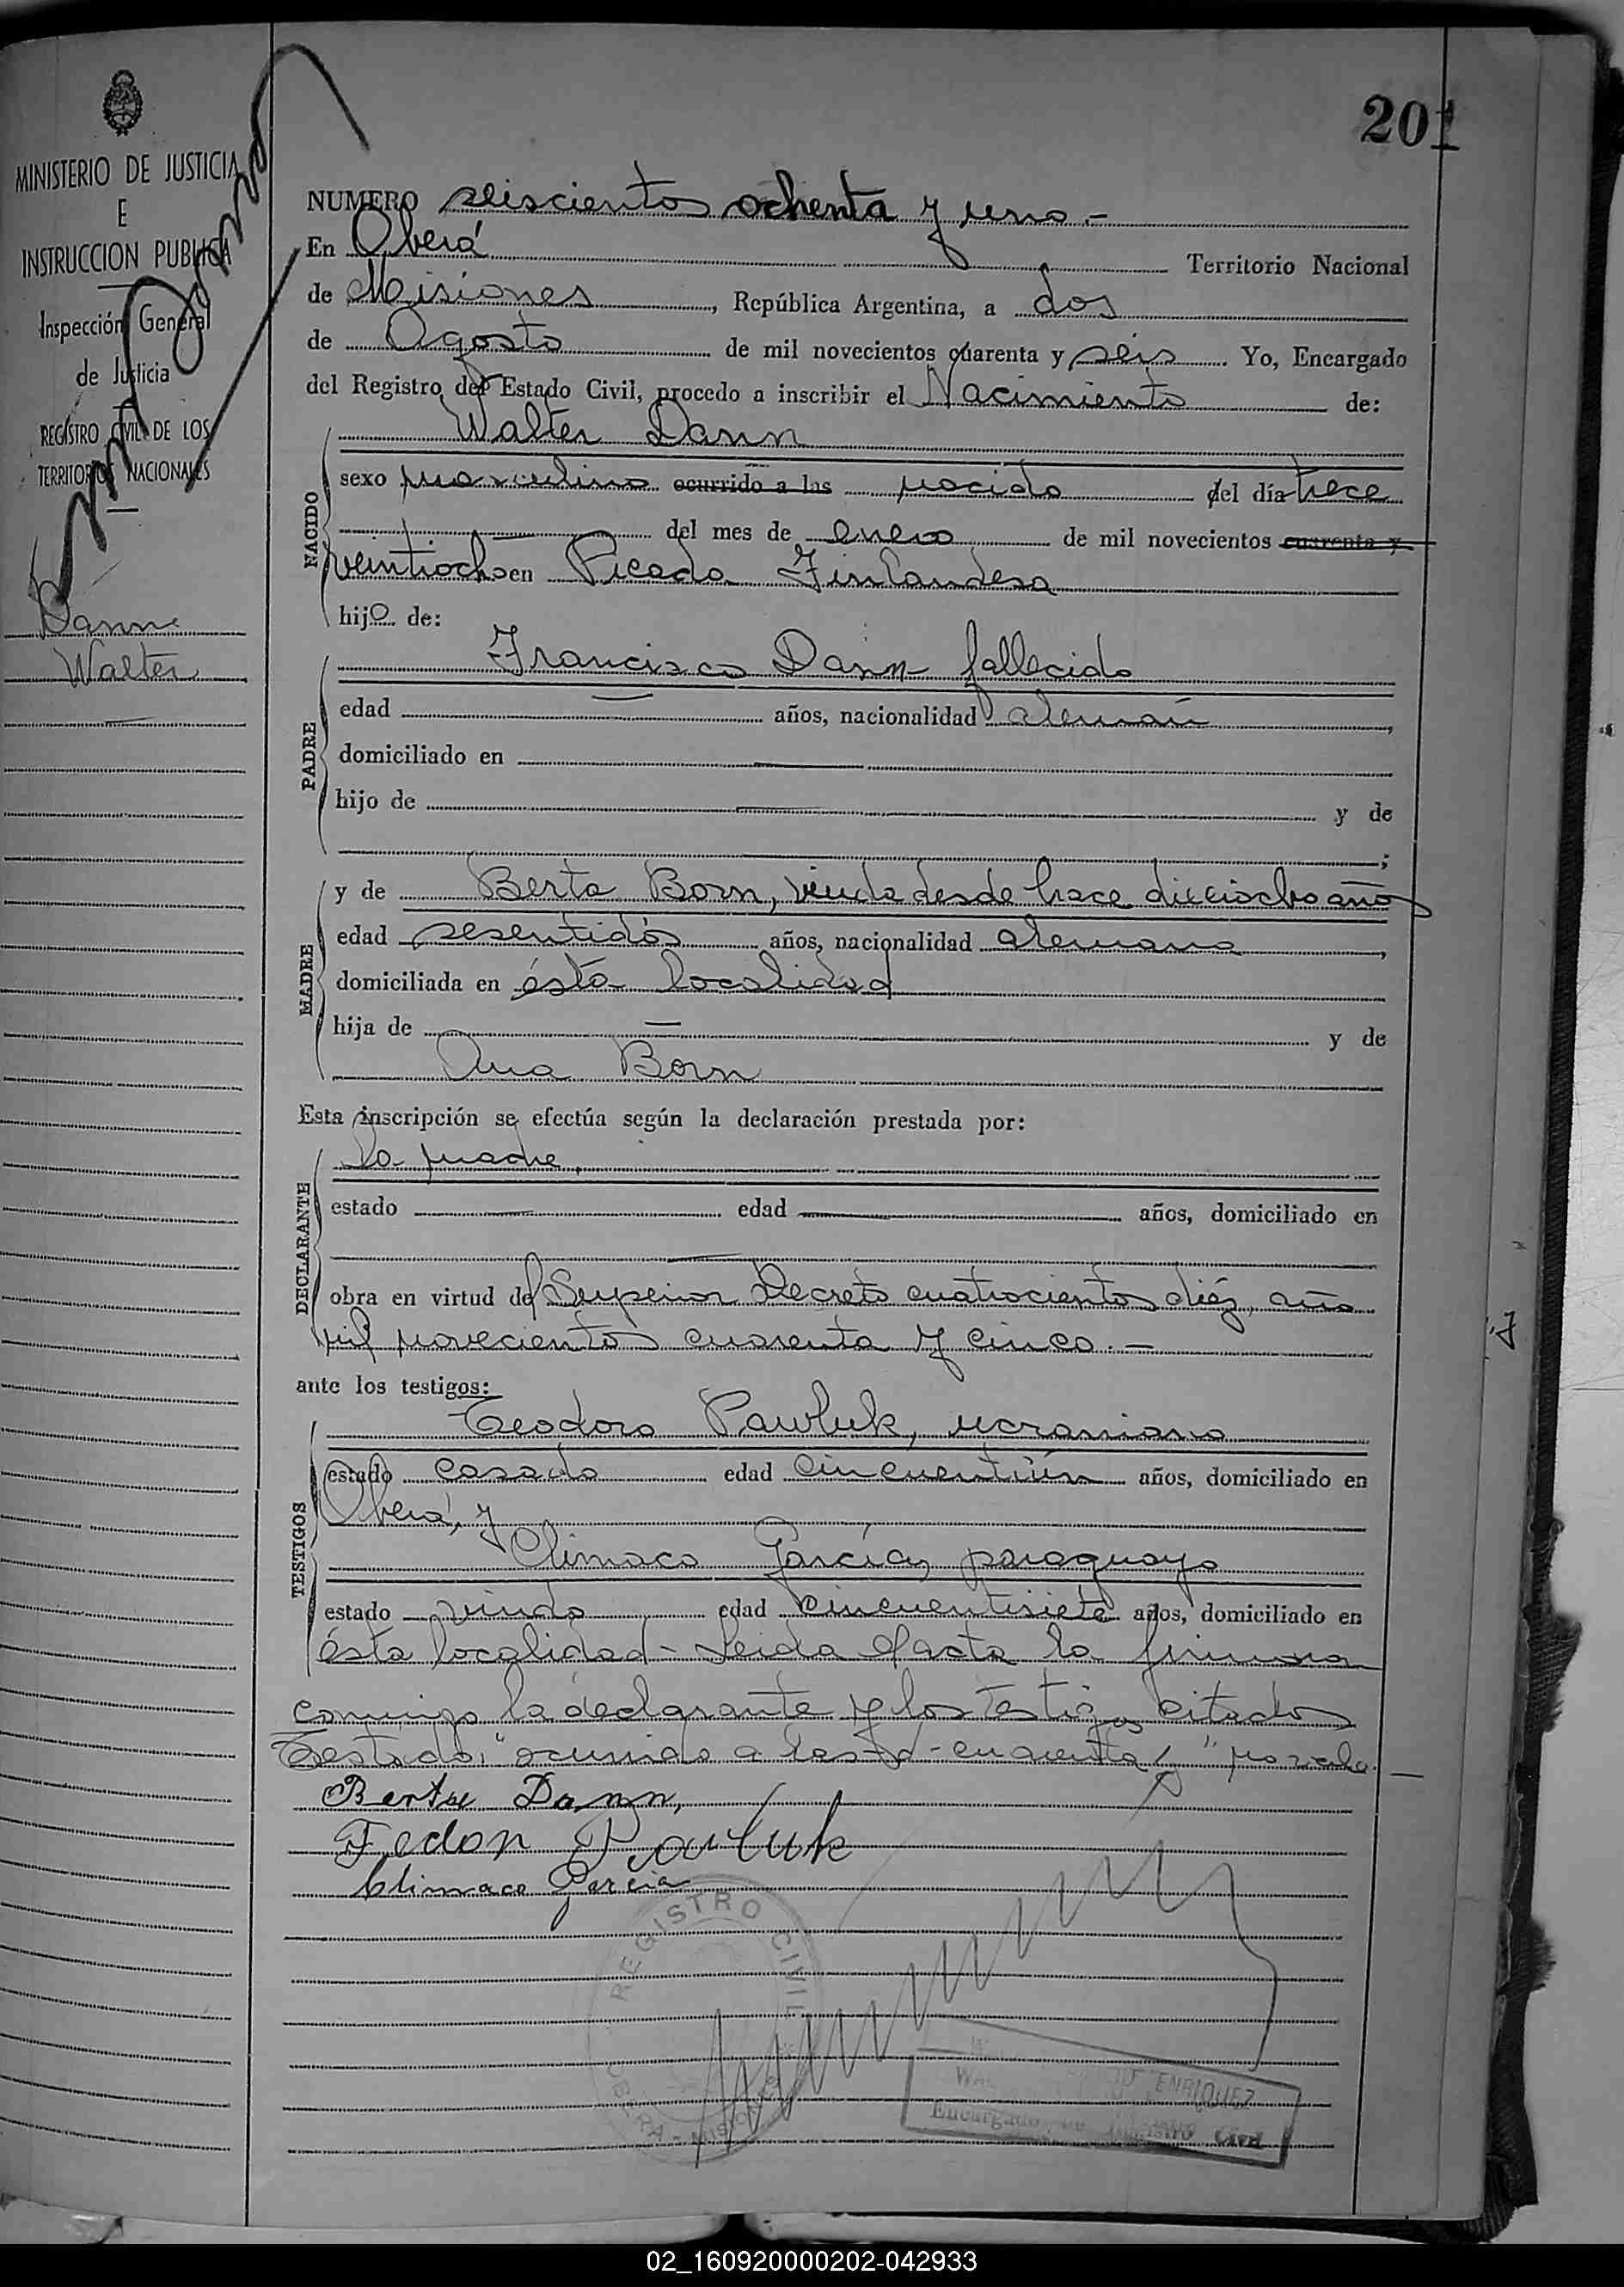 201
MINISTERIO DE JUSTICIA
E
INSTRUCCION PUBLICA
Inspección General
de Justicia
REGISTRO CIVIL DE LOS
TERRITORIOS NACIONALES
Dann
Walter
NUMERO seiscientos ochenta y uno.-
En Oberá Territorio Nacional
de Misiones, República Argentina, a dos
de Agosto de mil novecientos cuarenta y seis. Yo, Encargado
del Registro del Estado Civil, procedo a inscribir el Nacimiento de:
Walter Dann
NACIDO
sexo masculino ocurrido a las nacido del día trece
del mes de enero de mil novecientos cuarenta y
veintiocho en Picada Finlandesa
hijo de:
PADRE
Francisco Dann - fallecido
edad años, nacionalidad alemán
domiciliado en
hijo de y de
;
MADRE
y de Berta Born, viuda desde hace dieciocho años
edad sesentidós años, nacionalidad alemana,
domiciliada en ésta localidad
hija de — y de
Ana Born
Esta inscripción se efectúa según la declaración prestada por:
DECLARANTE
la madre,
estado edad años, domiciliado en
obra en virtud del Superior Decreto cuatrocientos diéz, año
mil novecientos cuarenta y cinco.-
ante los testigos:
TESTIGOS
Teodoro Pawluk, ucraniano
estado casado edad cincuentiún años, domiciliado en
Oberá, y
Climaco García, paraguayo
estado viudo edad cincuentisiete años, domiciliado en
ésta localidad - Leida el acta la firmaron
conmigo la declarante y los testigos citados
Testado: "ocurrido a las - d - cuarenta y" no vale.
Berta Dann,
Fedor Pawluk
Climaco Garcia
REGISTRO CIVIL
OBERA - MISIONES
ENRIQUEZ
Encargado Registro Civil
02_160920000202-042933